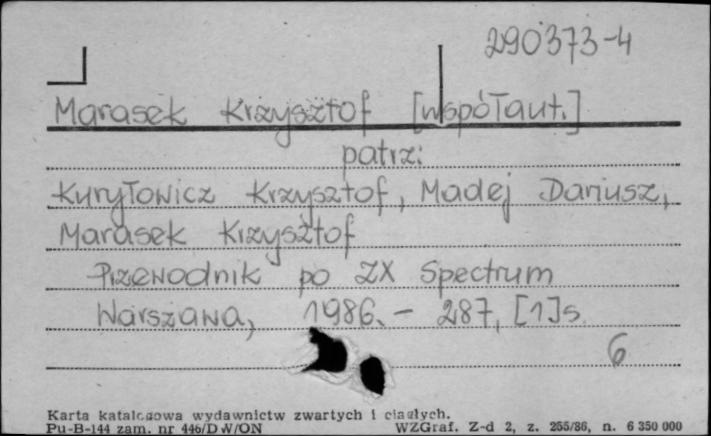 290373-4
Marasek Krzysztof [współaut.]
patrz:
Kuryłowicz Krzysztof, Madej Dariusz,
Marasek Krzysztof
Przewodnik po ZX Spectrum
Warszawa, 1986. - 287, [1]s.
6
Karta katalogowa wydawnictw zwartych i ciągłych.
Pu-B-144 zam. nr 446/DW/ON WZGraf. Z-d 2, z. 255/86, n. 6 350 000